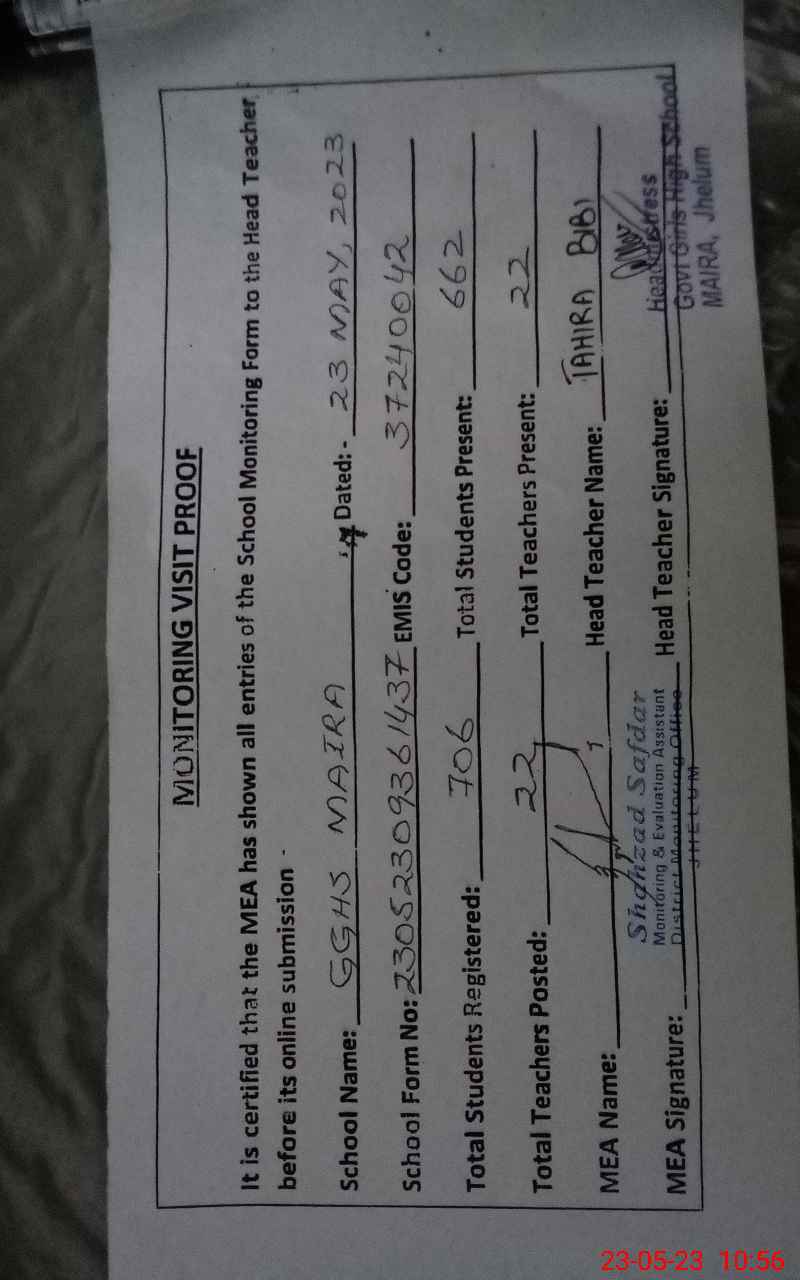 MONITORING VISIT PROOF
It is certified that the MEA has shown all entries of the School Monitoring Form to the Head Teacher
before its online submission
School Name: GGHS MAIRA Dated: - 23 MAY, 2023
School Form No: 23052309361437 EMIS Code: 37240042
Total Students Registered: 706 Total Students Present: 662
Total Teachers Posted: 22 Total Teachers Present: 22
MEA Name: Head Teacher Name: TAHIRA BIBI
Shahzad Safdar
Monitoring & Evaluation Assistant
District Monitoring Office
JHELUM
MEA Signature: Head Teacher Signature:
Headmistress
Govt Girls High School
MAIRA, Jhelum
23-05-23 10:56